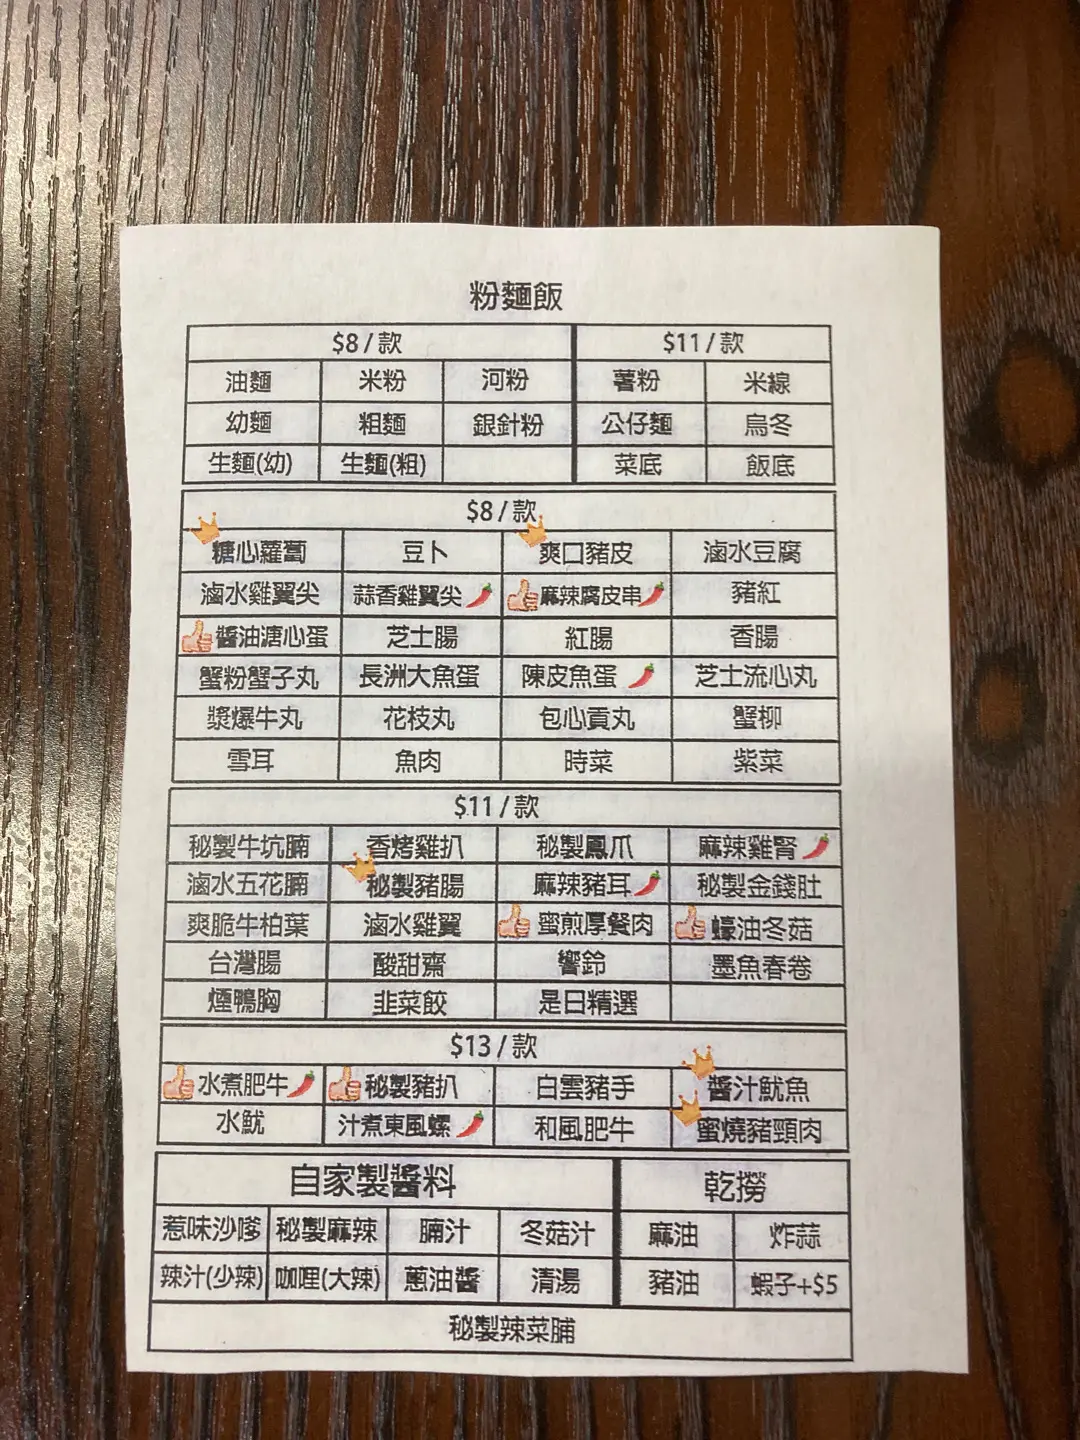 粉麵飯
$8 / 款 $11 / 款
油麵 米粉 河粉 薯粉 米線
幼麵 粗麵 銀針粉 公仔麵 烏冬
生麵(幼) 生麵(粗) 菜底 飯底
$8 / 款
糖心蘿蔔 豆卜 爽口豬皮 滷水豆腐
滷水雞翼尖 蒜香雞翼尖 麻辣腐皮串 豬紅
醬油溏心蛋 芝士腸 紅腸 香腸
蟹粉蟹子丸 長洲大魚蛋 陳皮魚蛋 芝士流心丸
漿爆牛丸 花枝丸 包心貢丸 蟹柳
雪耳 魚肉 時菜 紫菜
$11 / 款
秘製牛坑腩 香烤雞扒 秘製鳳爪 麻辣雞腎
滷水五花腩 秘製豬腸 麻辣豬耳 秘製金錢肚
爽脆牛柏葉 滷水雞翼 蜜煎厚餐肉 蠔油冬菇
台灣腸 酸甜齋 響鈴 墨魚春卷
煙鴨胸 韭菜餃 是日精選
$13 / 款
水煮肥牛 秘製豬扒 白雲豬手 醬汁魷魚
水魷 汁煮東風螺 和風肥牛 蜜燒豬頸肉
自家製醬料 乾撈
惹味沙嗲 秘製麻辣 腩汁 冬菇汁 麻油 炸蒜
辣汁(少辣) 咖喱(大辣) 蔥油醬 清湯 豬油 蝦子+$5
秘製辣菜脯